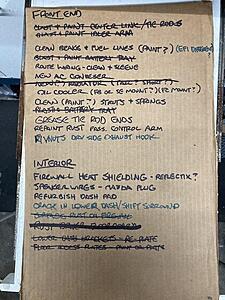 FRONT END
DUST + PAINT CENTER LINK/TIE RODS
PAINT IDLER ARM
CLEAN BRAKE + FUEL LINES (PAINT?) (EFI
PAINT BATTERY TRAY
ROUTE WIRING - CLEAN + SLEEVE
NEW AC CONDENSER
NEW RADIATOR ( SHORT?)
OIL COOLER (FB OR SE MOUNT?) (FC MOUNT?)
CLEAN (PAINT?) STRUTS + SPRINGS
BATTERY TRAY
GREASE TIE ROD ENDS
REPAINT RUST PASS. CONTROL ARM
RIVNUTS DRV SIDE EXHAUST HOOK
INTERIOR
FIREWALL HEAT SHIELDING - REFLECTIX?
SPEAKER WIRES - MAZDA PLUG
REFURBISH DASH PAD
CRACK IN LOWER DASH/SHIFT SURROUND
RUST ON FIREWALL
LOWER DASH BRACKETS - RE-PLATE
FLOOR ACCESS PLATES - PAINT OR PLATE